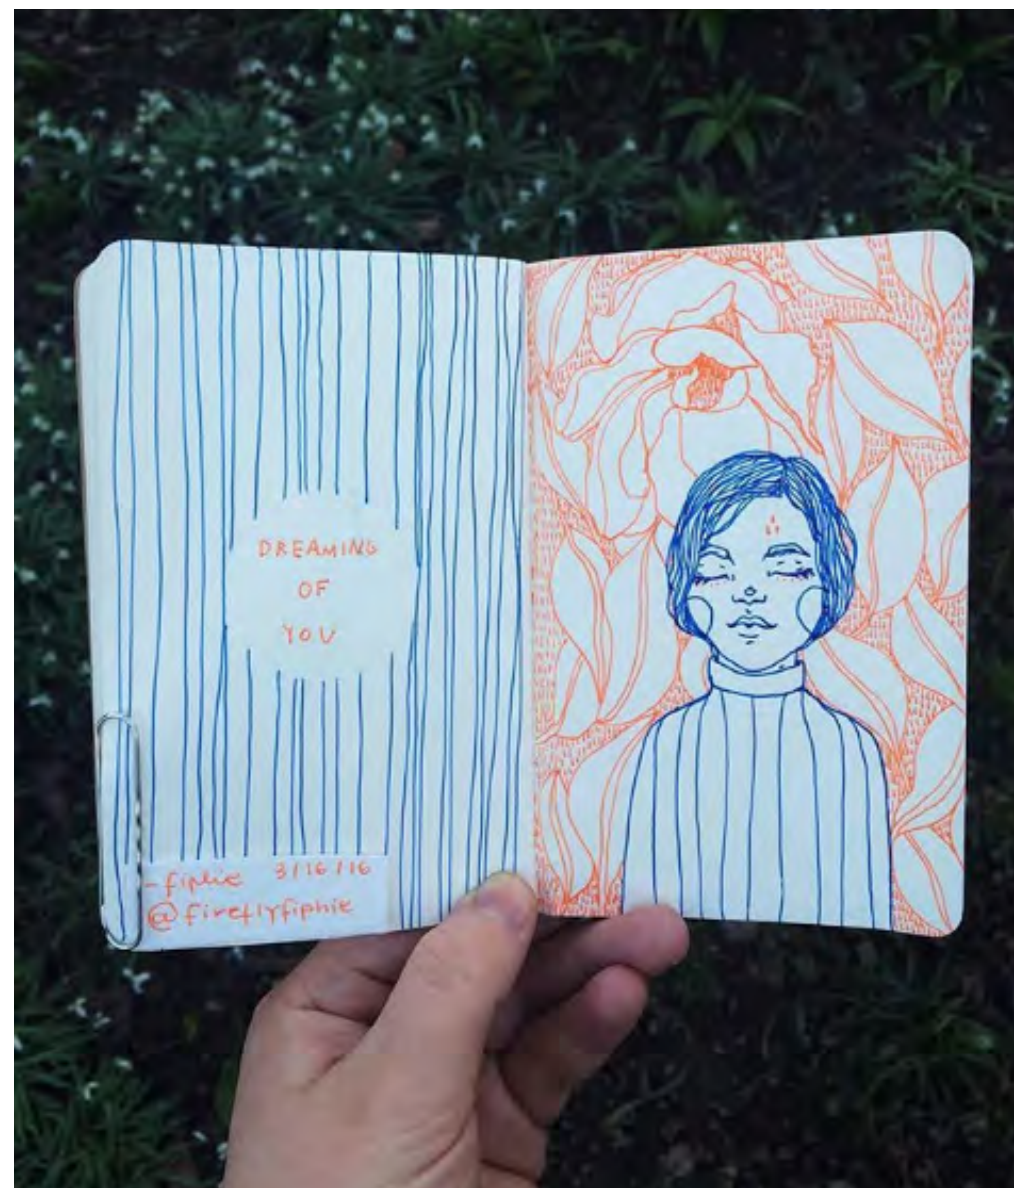 DREAMING
OF
YOU
-fiphie 3/16/16
@fireflyfiphie